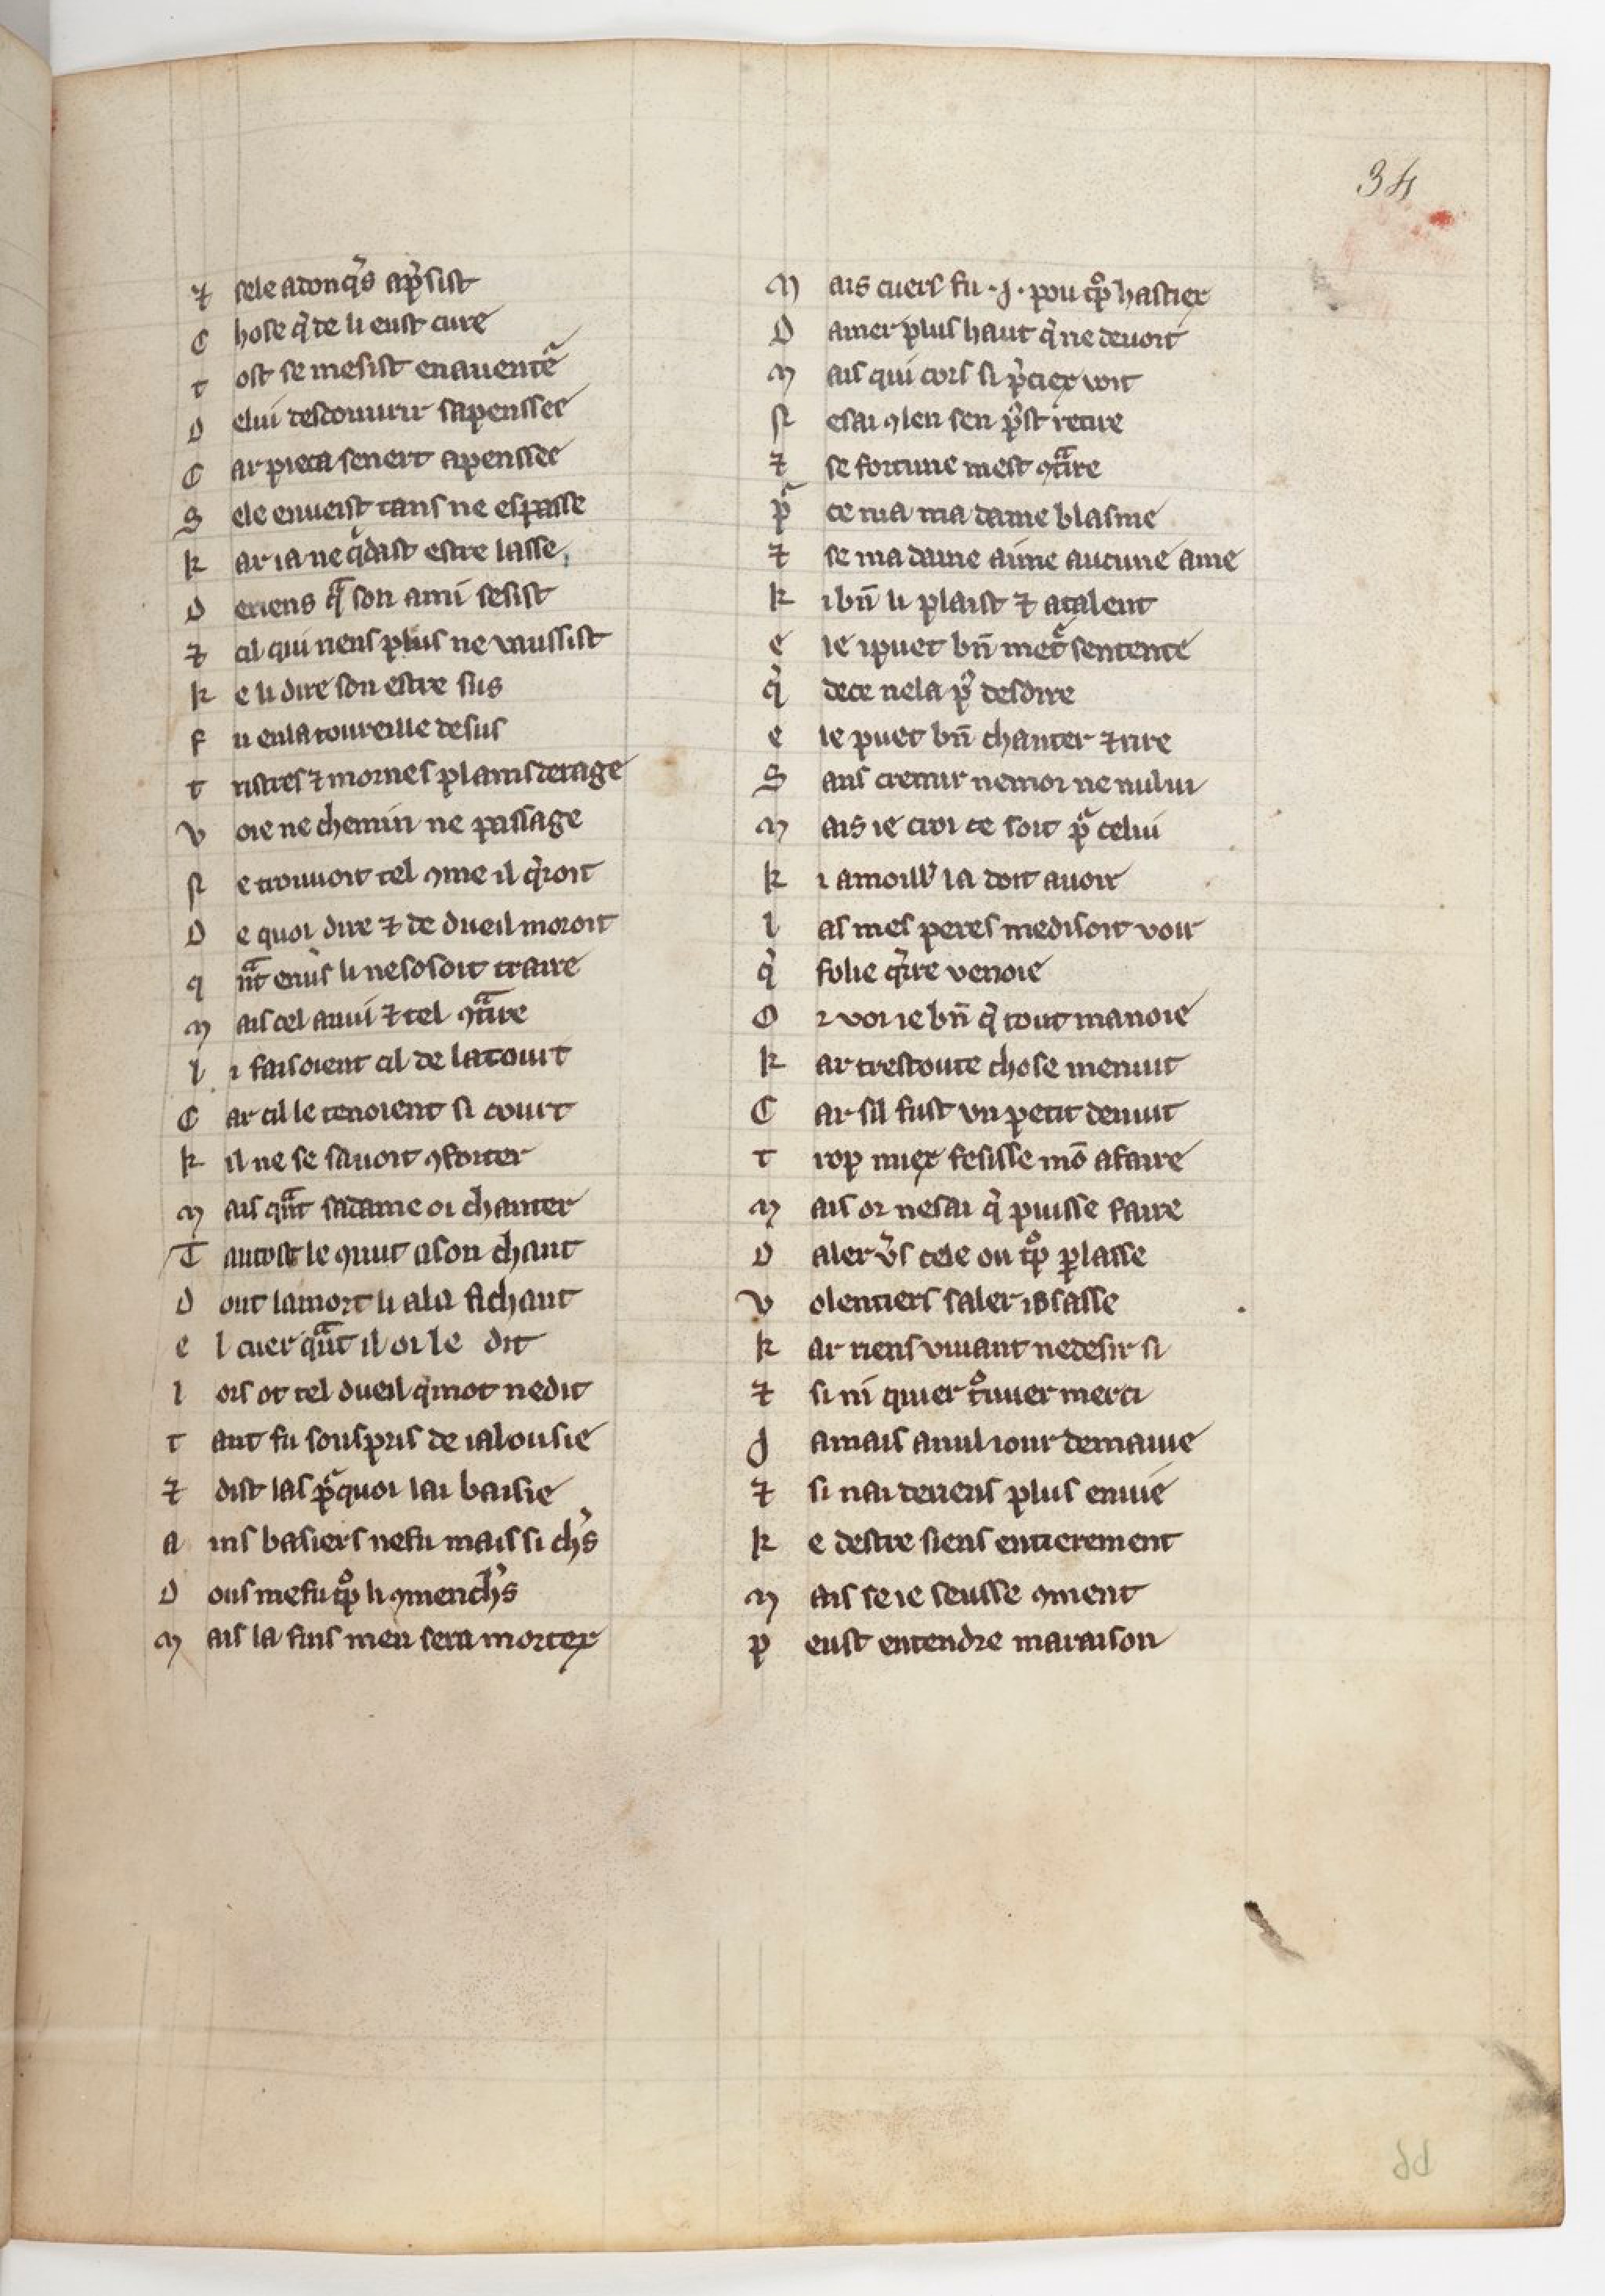 34
⁊ sele adonq̓s ap̓sist
C hose q̓ de li eust cure
t ost se mesist en auent᷑e
D elui descouurir sa pensse
C ar pieca senert apenssee
S ele en ueist tans ne espasse
k ar ia ne q̓dast estre lasse
D e riens qͣ son ami sesist
⁊ cil qui riens plus ne vaussist
k e li dire son estre sus
f u en la toureille desus
t ristres ⁊ mornes plains de rage
v oie ne chemin ne passage
N e trouuoit tel ꝯme il q̓roit
D e quoi dire ⁊ de dueil moroit
q nͣt enu̓s li ne sosoit traire
M ais cel anui ⁊ tel ꝯtͣire
l i faisoient cil de la tourt
C ar cil le tenoient si court
k il ne se sauoit ꝯforter
M ais qͣnt sa dame oi chanter
T antost le ꝯnut a son chant
D ont la mort li ala fichant
e l cuer qͣnt il oi le dit
l ors ot tel dueil q̓ mot ne dit
t ant fu souspris de ialousie
⁊ dist las p᷑quoi lai baisie
a ins baisiers ne fu mais si ch̓s
D ous me fu tͦp li ꝯmench̓s
M ais la fins men sera mortex
M ais cuers fu .J. pou tͦp hastiex
D amer plus haut q̓ ne deuoit
M ais qui cors si p̓ciex voit
N e sai ꝯ len sen p̓st retire
⁊ se fortune mest ꝯtͣire
p᷑ ce nia ma dame blasme
⁊ se ma dame aime aucune ame
k i bn̄ li plaist ⁊ atalent
e le i puet bn̄ met᷑ sentente
q̓ de ce ne la p̓ desdire
e le puet bn̄ chanter ⁊ rire
S ans cremir ne moi ne nului
M ais ie croi ce soit p᷑ celui
k i a moillr̓ la doit auoir
l as mes peres me disoit voir
q̓ folie q̓rre venoie
O r voi ie bn̄ q̓ tout manoie
k ar trestoute chose me nuit
C ar sil fust vn petit de nuit
t rop miex fesisse mō afaire
M ais or ne sai q̓ puisse faire
D aler v̓s cele ou tͦp ꝑlasse
v olentiers saler i osasse
k ar riens viuant ne desir si
⁊ si ni quier tͦuuer merci
J amais a nul iour de ma vie
⁊ si nai de riens plus enuie
k e destre siens entierement
M ais se ie seusse ꝯment
p eust entendre ma raison